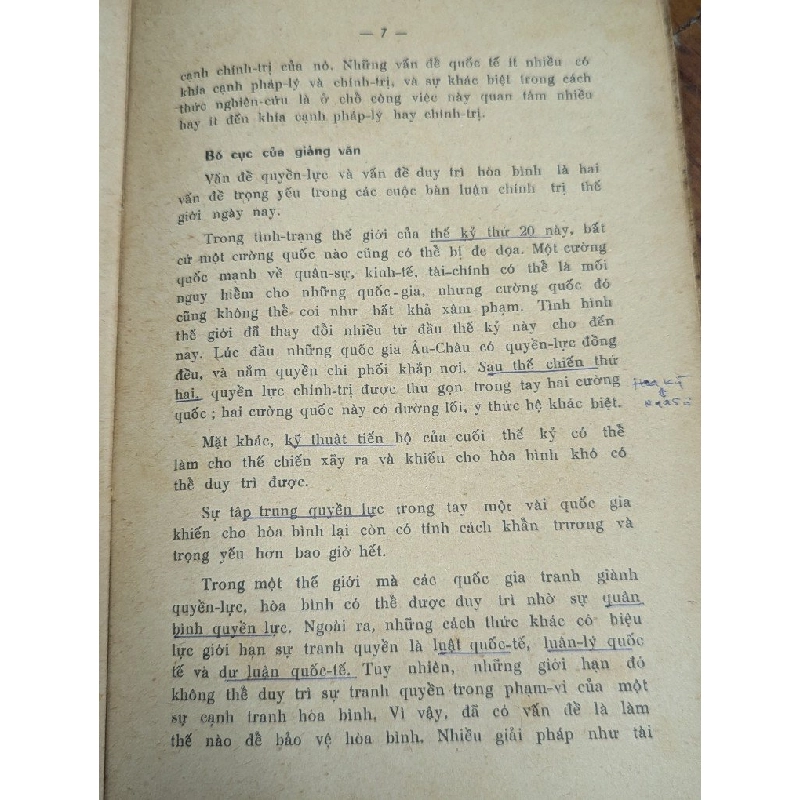 — 7 —
cạnh chính-trị của nó. Những vấn đề quốc tế ít nhiều có
khía cạnh pháp-lý và chính-trị, và sự khác biệt trong cách
thức nghiên-cứu là ở chỗ công việc này quan tâm nhiều
hay ít đến khía cạnh pháp-lý hay chính-trị.
Bố cục của giảng văn
Vấn đề quyền-lực và vấn đề duy trì hòa bình là hai
vấn đề trọng yếu trong các cuộc bàn luận chính trị thế
giới ngày nay.
Trong tình-trạng thế giới của thế kỷ thứ 20 này, bất
cứ một cường quốc nào cũng có thể bị đe dọa. Một cường
quốc mạnh về quân-sự, kinh-tế, tài-chính có thể là mối
nguy hiểm cho những quốc-gia, nhưng cường quốc đó
cũng không thể coi như bất khả xâm phạm. Tình hình
thế giới đã thay đổi nhiều từ đầu thế kỷ này cho đến
nay. Lúc đầu những quốc gia Âu-Châu có quyền-lực đồng
đều, và nắm quyền chi phối khắp nơi. Sau thế chiến thứ
hai, quyền lực chính-trị được thu gọn trong tay hai cường
quốc ; hai cường quốc này có đường lối, ý thức hệ khác biệt.
Hoa Kỳ
&
Nga Sô
Mặt khác, kỹ thuật tiến bộ của cuối thế kỷ có thể
làm cho thế chiến xảy ra và khiến cho hòa bình khó có
thể duy trì được.
Sự tập trung quyền lực trong tay một vài quốc gia
khiến cho hòa bình lại còn có tính cách khẩn trương và
trọng yếu hơn bao giờ hết.
Trong một thế giới mà các quốc gia tranh giành
quyền-lực, hòa bình có thể được duy trì nhờ sự quân
bình quyền lực. Ngoài ra, những cách thức khác có hiệu
lực giới hạn sự tranh quyền là luật quốc-tế, luân-lý quốc
tế và dư luận quốc-tế. Tuy nhiên, những giới hạn đó
không thể duy trì sự tranh quyền trong phạm-vi của một
sự cạnh tranh hòa bình. Vì vậy, đã có vấn đề là làm
thế nào để bảo vệ hòa bình. Nhiều giải pháp như tài